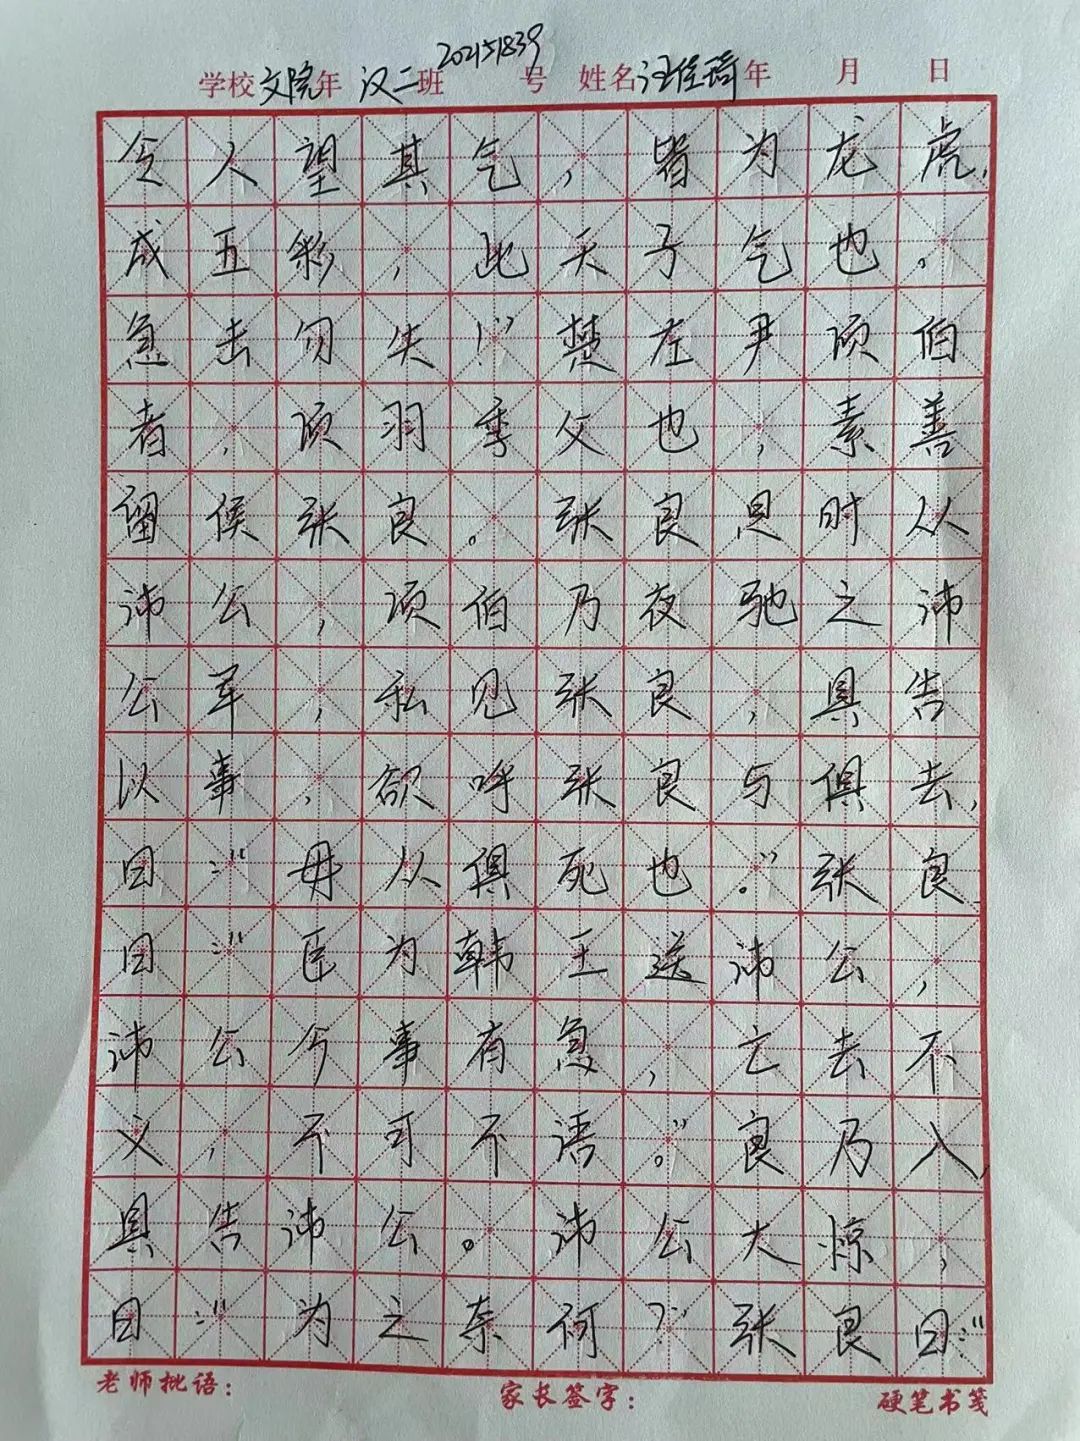 学校文院年 汉二班 202151839号 姓名汪佳琦年 月 日
令人望其气，皆为龙虎，
成五彩，此天子气也。
急击勿失！”楚左尹项伯
者，项羽季父也，素善
留侯张良。张良是时从
沛公，项伯乃夜驰之沛
公军，私见张良，具告
以事，欲呼张良与俱去，
曰：“毋从俱死也。”张良
曰：“臣为韩王送沛公，
沛公今事有急，亡去不
义，不可不语。”良乃入，
具告沛公。沛公大惊，
曰：“为之奈何？”张良曰：“
老师批语： 家长签字： 硬笔书笺